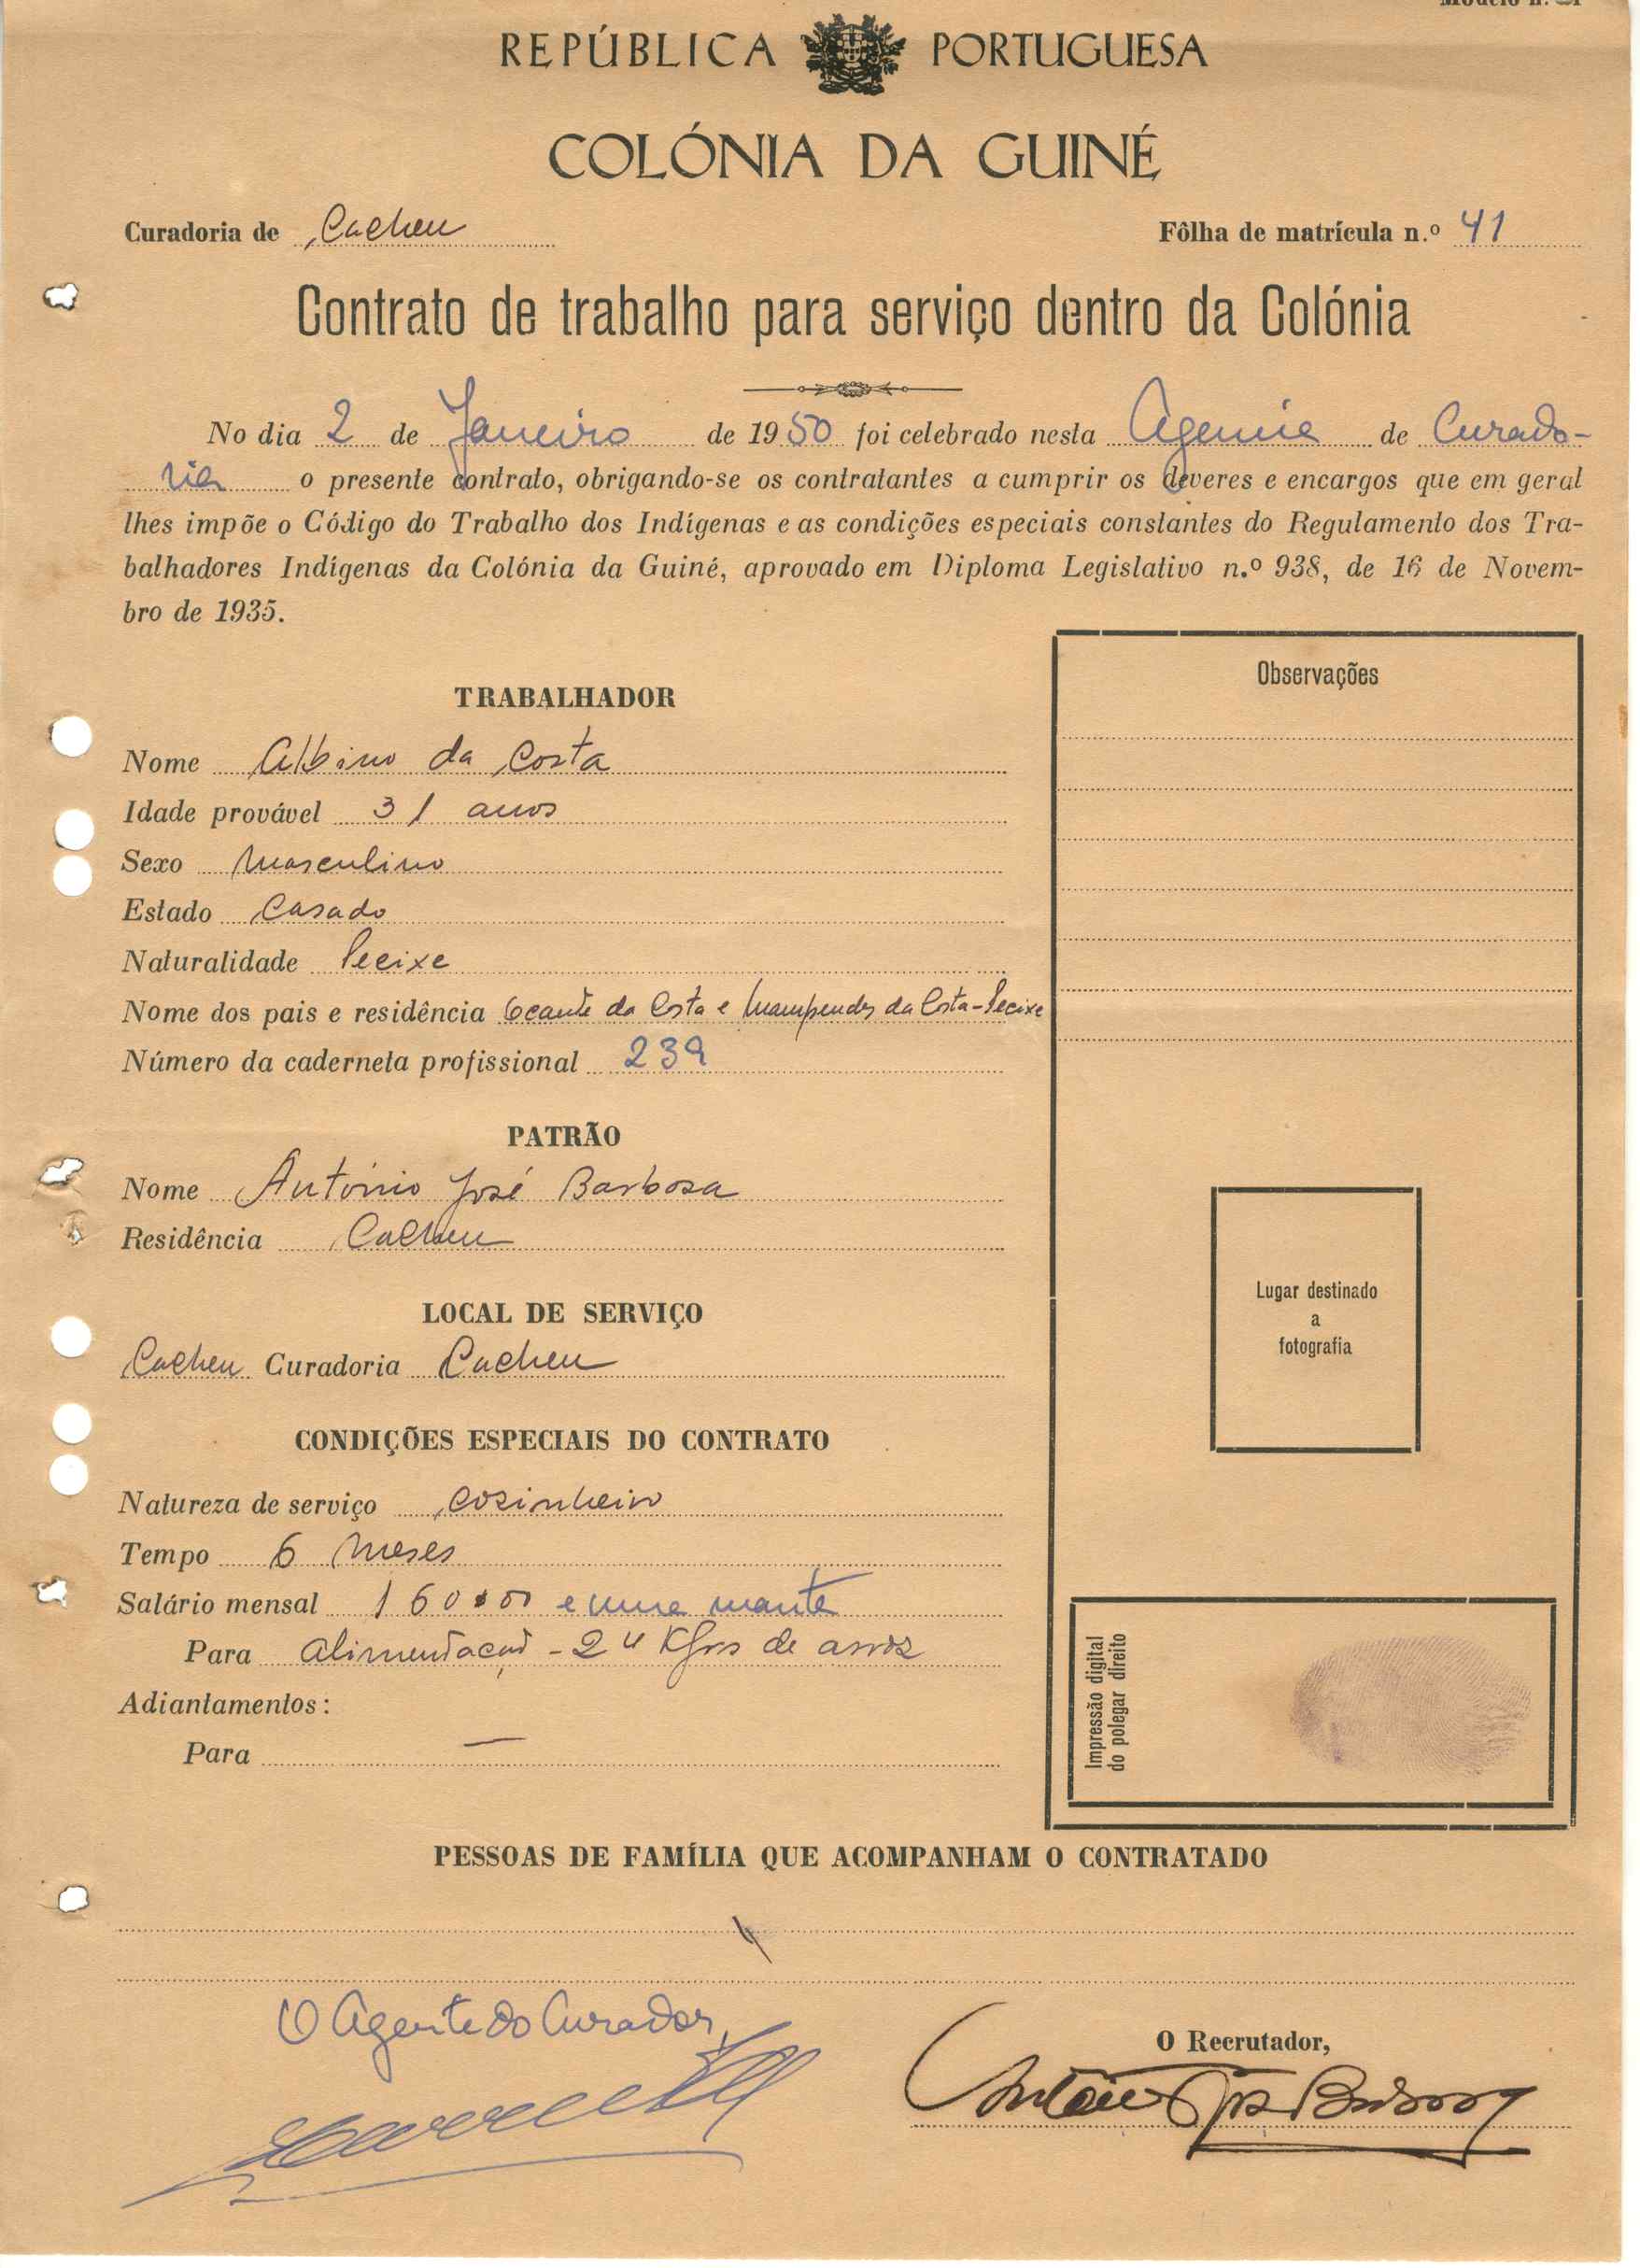 REPÚBLICA PORTUGUESA
COLÓNIA DA GUINÉ
Curadoria de Cacheu Fôlha de matrícula n.º 41
Contrato de trabalho para serviço dentro da Colónia
No dia 2 de Janeiro de 1950 foi celebrado nesta Agencia de Curado-
ria o presente contrato, obrigando-se os contratantes a cumprir os deveres e encargos que em geral
lhes impõe o Código do Trabalho dos Indígenas e as condições especiais constantes do Regulamento dos Tra-
balhadores Indígenas da Colónia da Guiné, aprovado em Diploma Legislativo n.º 938, de 16 de Novem-
bro de 1935.
TRABALHADOR
Nome Albino da Costa
Idade provável 31 anos
Sexo Masculino
Estado Casado
Naturalidade Pecixe
Nome dos pais e residência da Costa e da Costa - Pecixe
Número da caderneta profissional 239
PATRÃO
Nome António José Barbosa
Residência Cacheu
LOCAL DE SERVIÇO
Cacheu Curadoria Cacheu
CONDIÇÕES ESPECIAIS DO CONTRATO
Natureza de serviço Cozinheiro
Tempo 6 meses
Salário mensal 160$00 e uma manta
Para alimentação - 24 Kgrs de arroz
Adiantamentos:
Para —
Observações
Lugar destinado
a
fotografia
Impressão digital
do polegar direito
PESSOAS DE FAMÍLIA QUE ACOMPANHAM O CONTRATADO
O Agente do Curador,
O Recrutador,
António José Barbosa